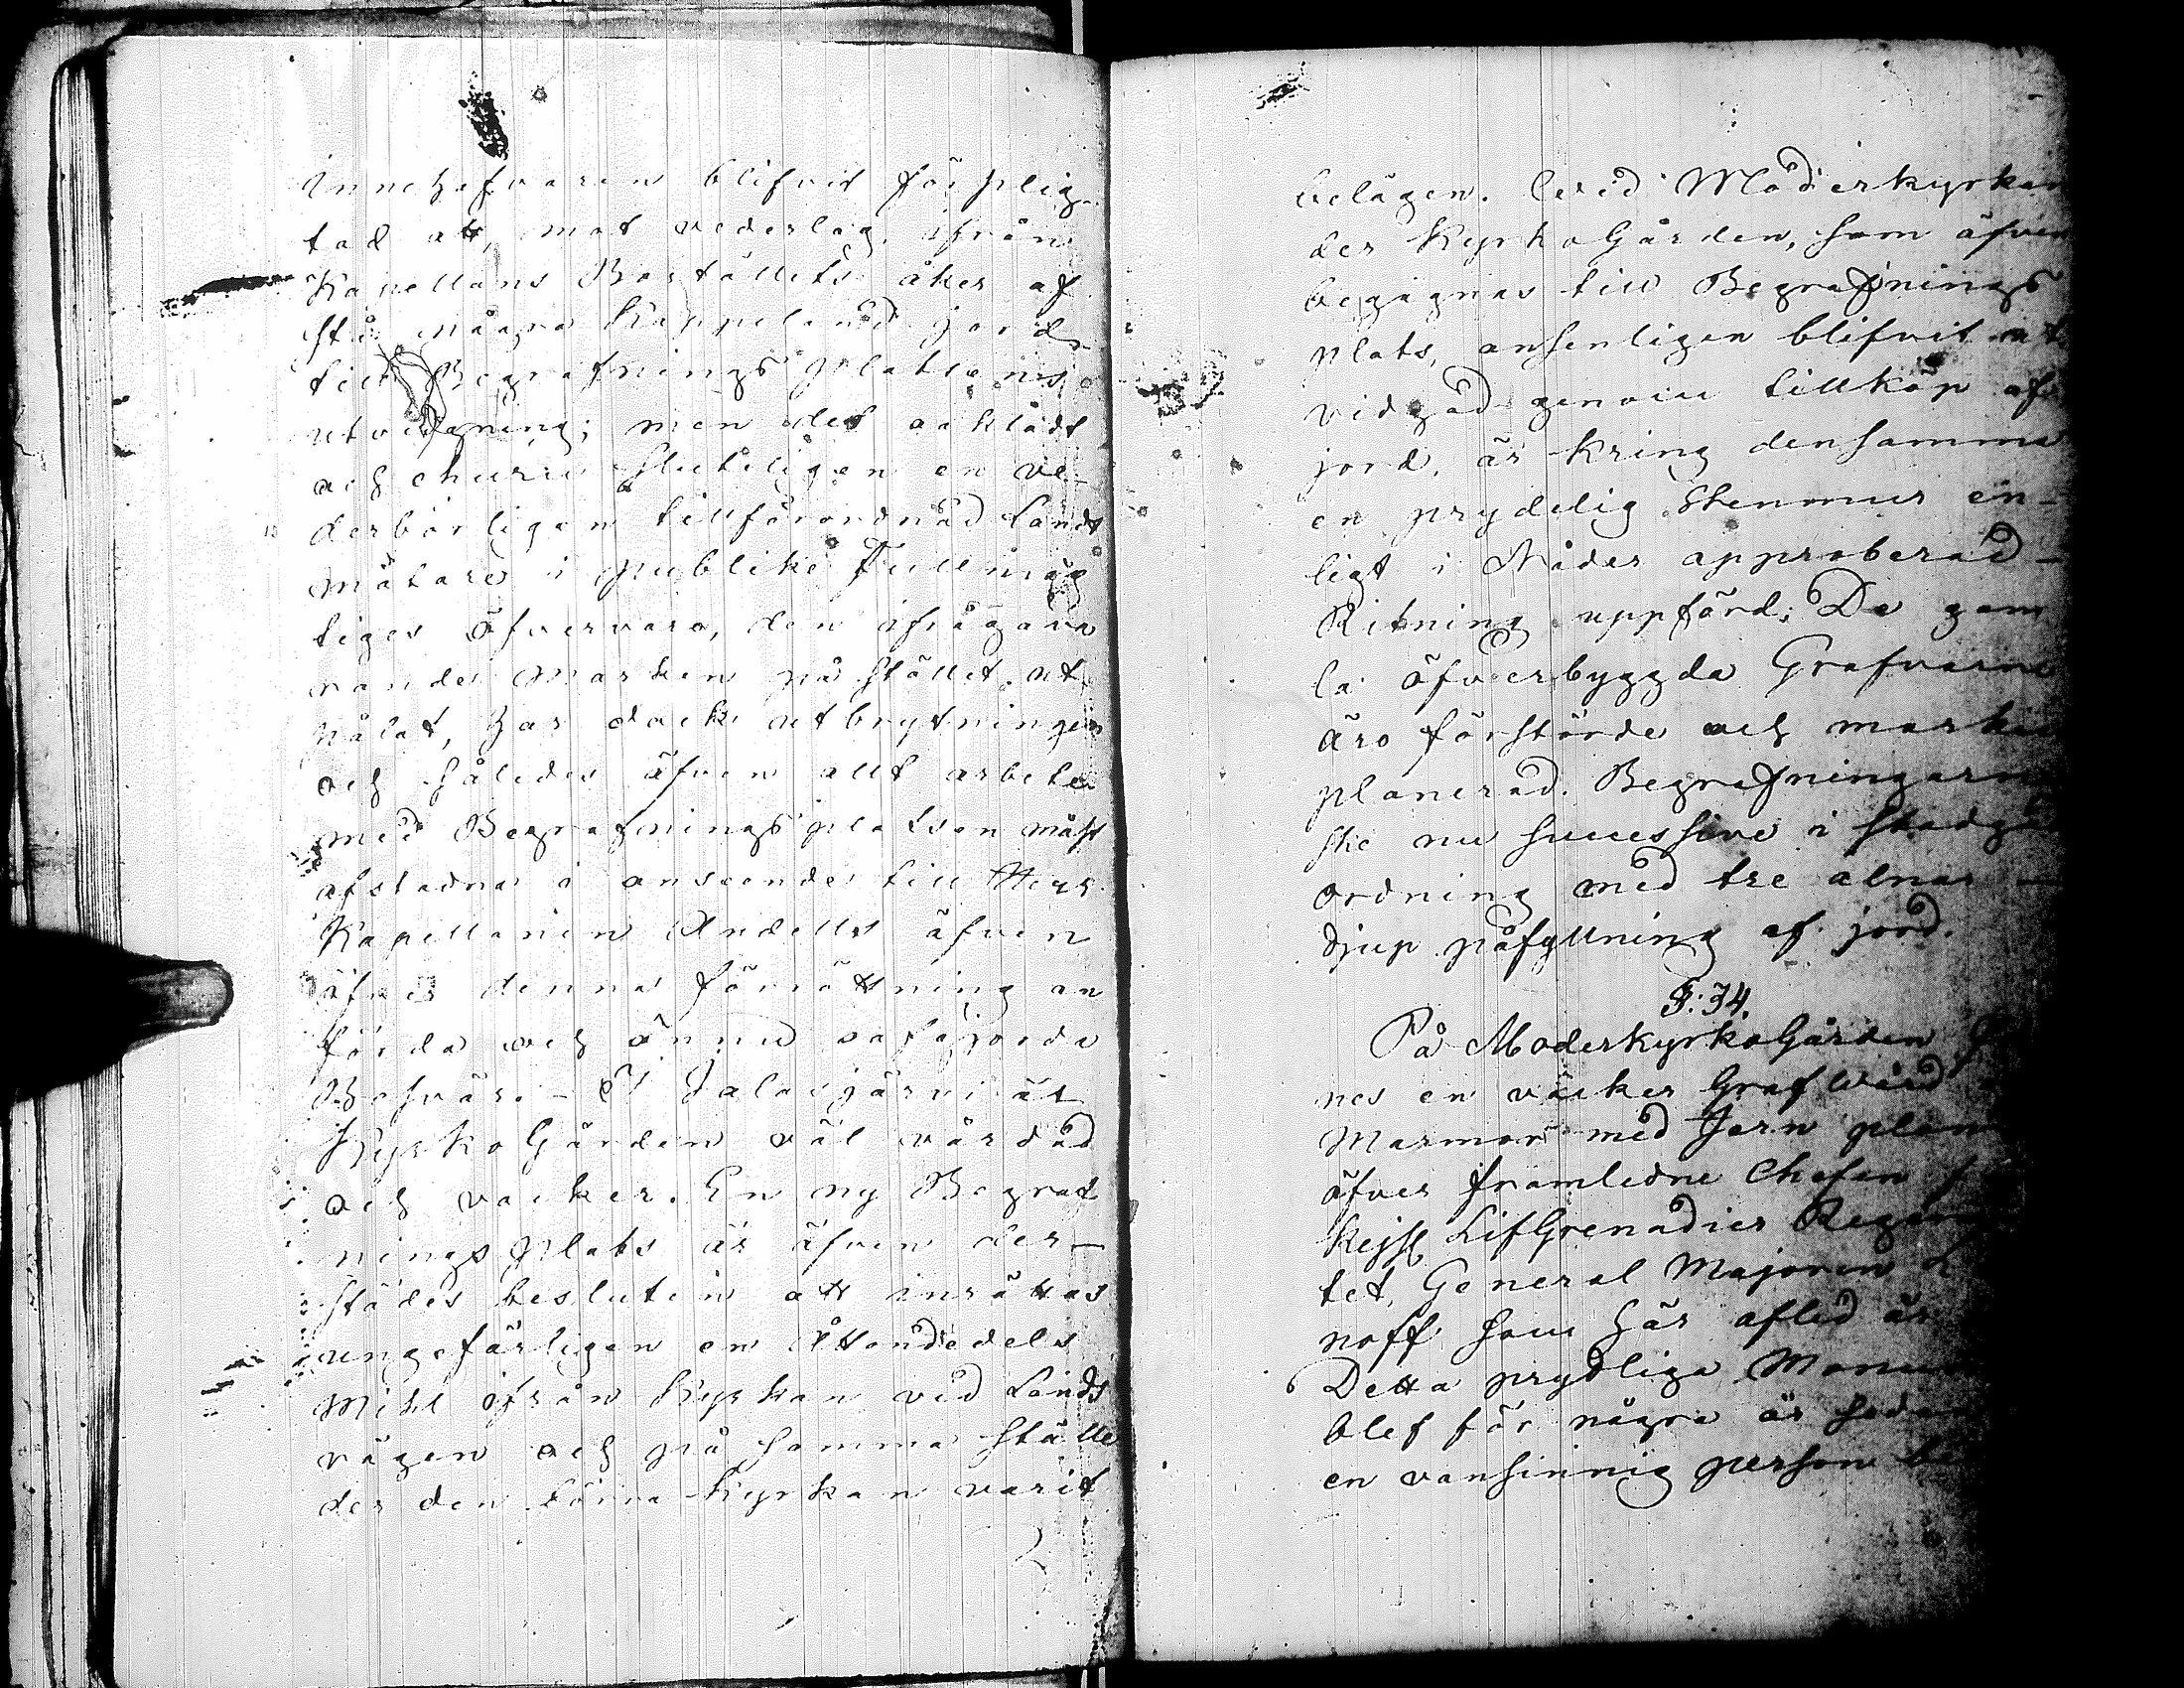 Innehafvaren blifvit förplig-
tad att, mot vederlag, ifrån
Kapellans Boställets åker af
stå några Kappeland jord
till Begrafnings Platsens
utvidgning; men det oaktadt
och ehuru sluteligen en ve-
derbörligen tillförordnad Landt
mätare i publike Fullmäg
tiges öfvervaro, den ifrågava
rande Marken på stället ut
pålat, har dock utbrytningen
och således äfven allt arbete
med Begrafningsplatsen måst
afstadna i anseende till Herr
Kapellanen Andells äfven
öfver denna förrättning an
förda och ännu oafgjorda
Besvär. - I Jalasjärvi är
KyrkoGården väl vårdad
och vacker. En ny Begraf
nings Plats är äfven der-
städes besluten att inrättas
ungefärligen en Åttondedels
Mihl ifrån Kyrkan vid Lands
vägen och på samma ställe
der den förra Kyrkan varit
belägen. Wid Moderkyrkan
der KyrkoGården, som äfven
begagnas till Begrafnings
plats, ansenligen blifvit ut
vidgad genom tillköp af
jord, är kring densamma
en prydelig Stenmur en-
ligt i Nåder approberad
Ritning uppförd; De gam
la öfverbyggda Grafvarne
äro förstörde och marken
planerad. Begrafningarne
ske nu successive i
ordning med tre alnar
djup påfyllning af jord.
§: 34.
På ModerkyrkoGården
nes en vacker Graf Wård
Marmor med Jern
öfver framledne Chefen
Kejs LifGrenadier
tet, General Majoren
noff som här afled år
Detta prydliga
blef för några år sedan
en vansinnig person